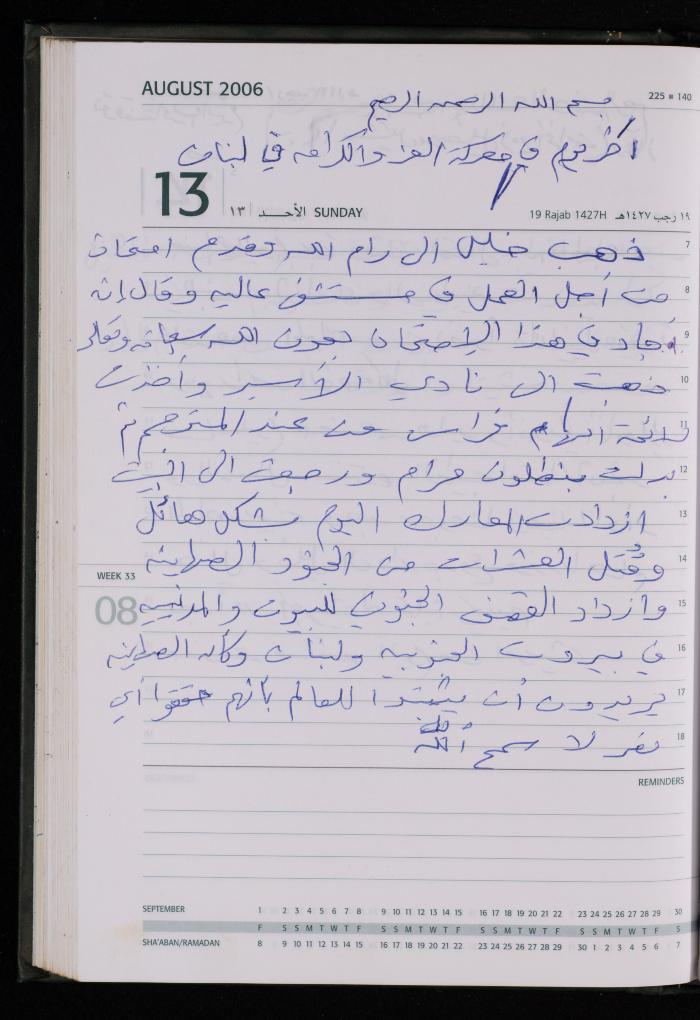 AUGUST 2006
225 ■ 140
بسم الله الرحمن الرحيم
آخر يوم في معركة العز والكرامه في لبنان
13 ١٣ الأحـــد SUNDAY 19 Rajab 1427H ١٩ رجب ١٤٢٧هـ
7 ذهب خليل الى رام الله وقدم امتحان
8 من أجل العمل في مستشفى عاليه وقال إنه
9 أجاد في هذا الإمتحان بعون الله سبحانه
10 ذهبت الى نادي الأسير وأخذت
11 لائحة اتهام فراس من عند المترجم ثم
12 بدلت بنطلون مرام ورجعت الى البيت
13 ازدادت المعارك اليوم بشكل هائل
14 وقُتل العشرات من الجنود الصهاينه
WEEK 33
08
15 وازداد القصف الجنوني للبيوت والمدنيين
16 في بيروت الجنوبيه ولبنان وكأن الصهاينه
17 يريدون أن يثبتوا للعالم بأنهم حققوا أي
18 نصر لا سمح الله
REMINDERS
SEPTEMBER 1 2 3 4 5 6 7 8 9 10 11 12 13 14 15 16 17 18 19 20 21 22 23 24 25 26 27 28 29 30
F S S M T W T F S S M T W T F S S M T W T F S S M T W T F S
SHA'ABAN/RAMADAN 8 9 10 11 12 13 14 15 16 17 18 19 20 21 22 23 24 25 26 27 28 29 30 1 2 3 4 5 6 7